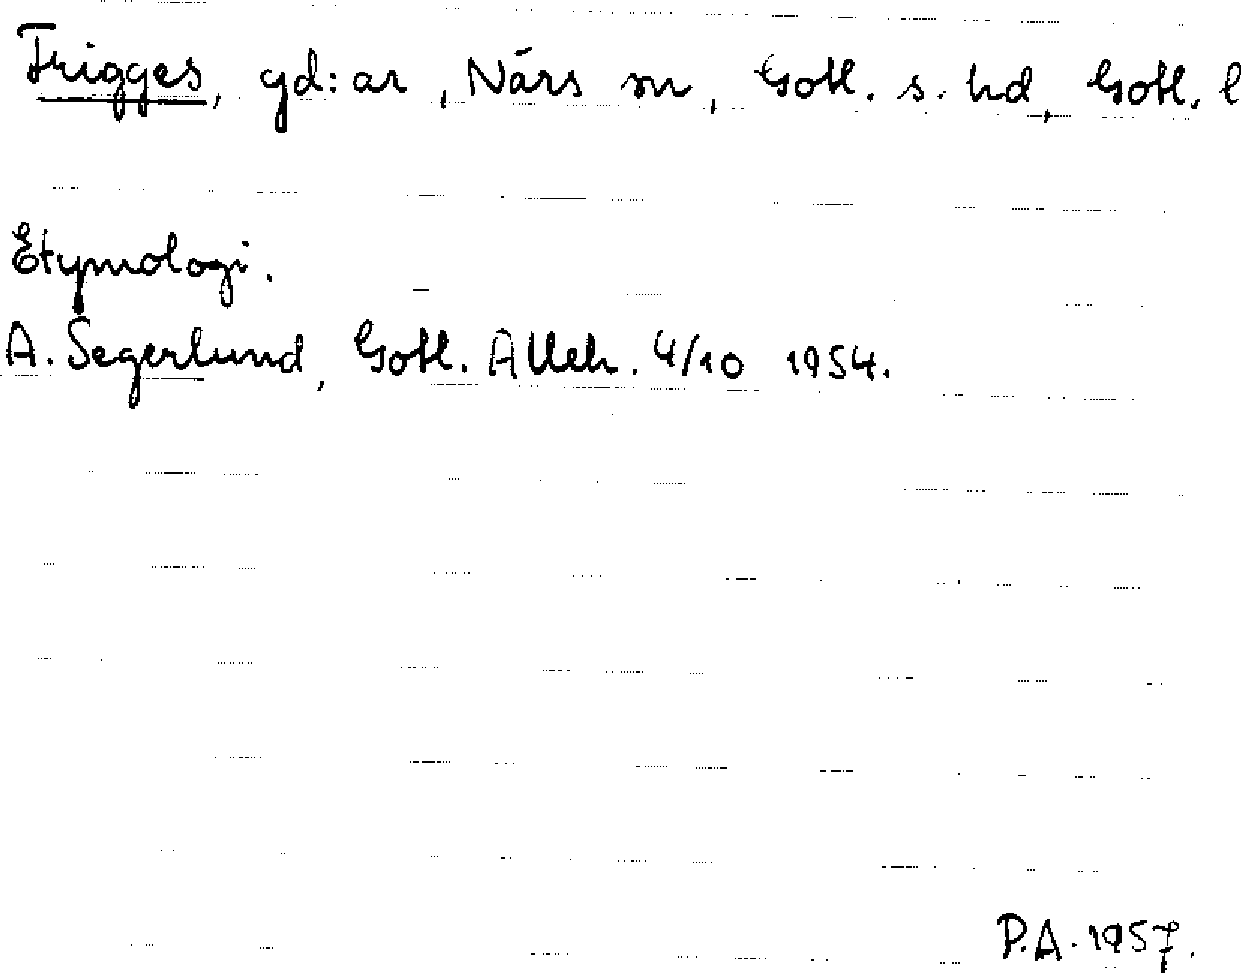 Frigges, gd:ar, Närs sn, Gotl. s. hd, Gotl. l
Etymologi.
A. Segerlund, Gotl. Alleh. 4/10 1954.
P.A. 1957.